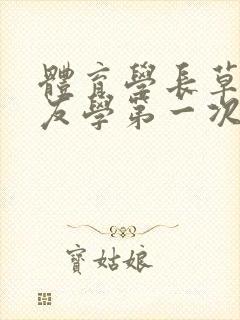 體育學長草
友學第一次
寶姑娘